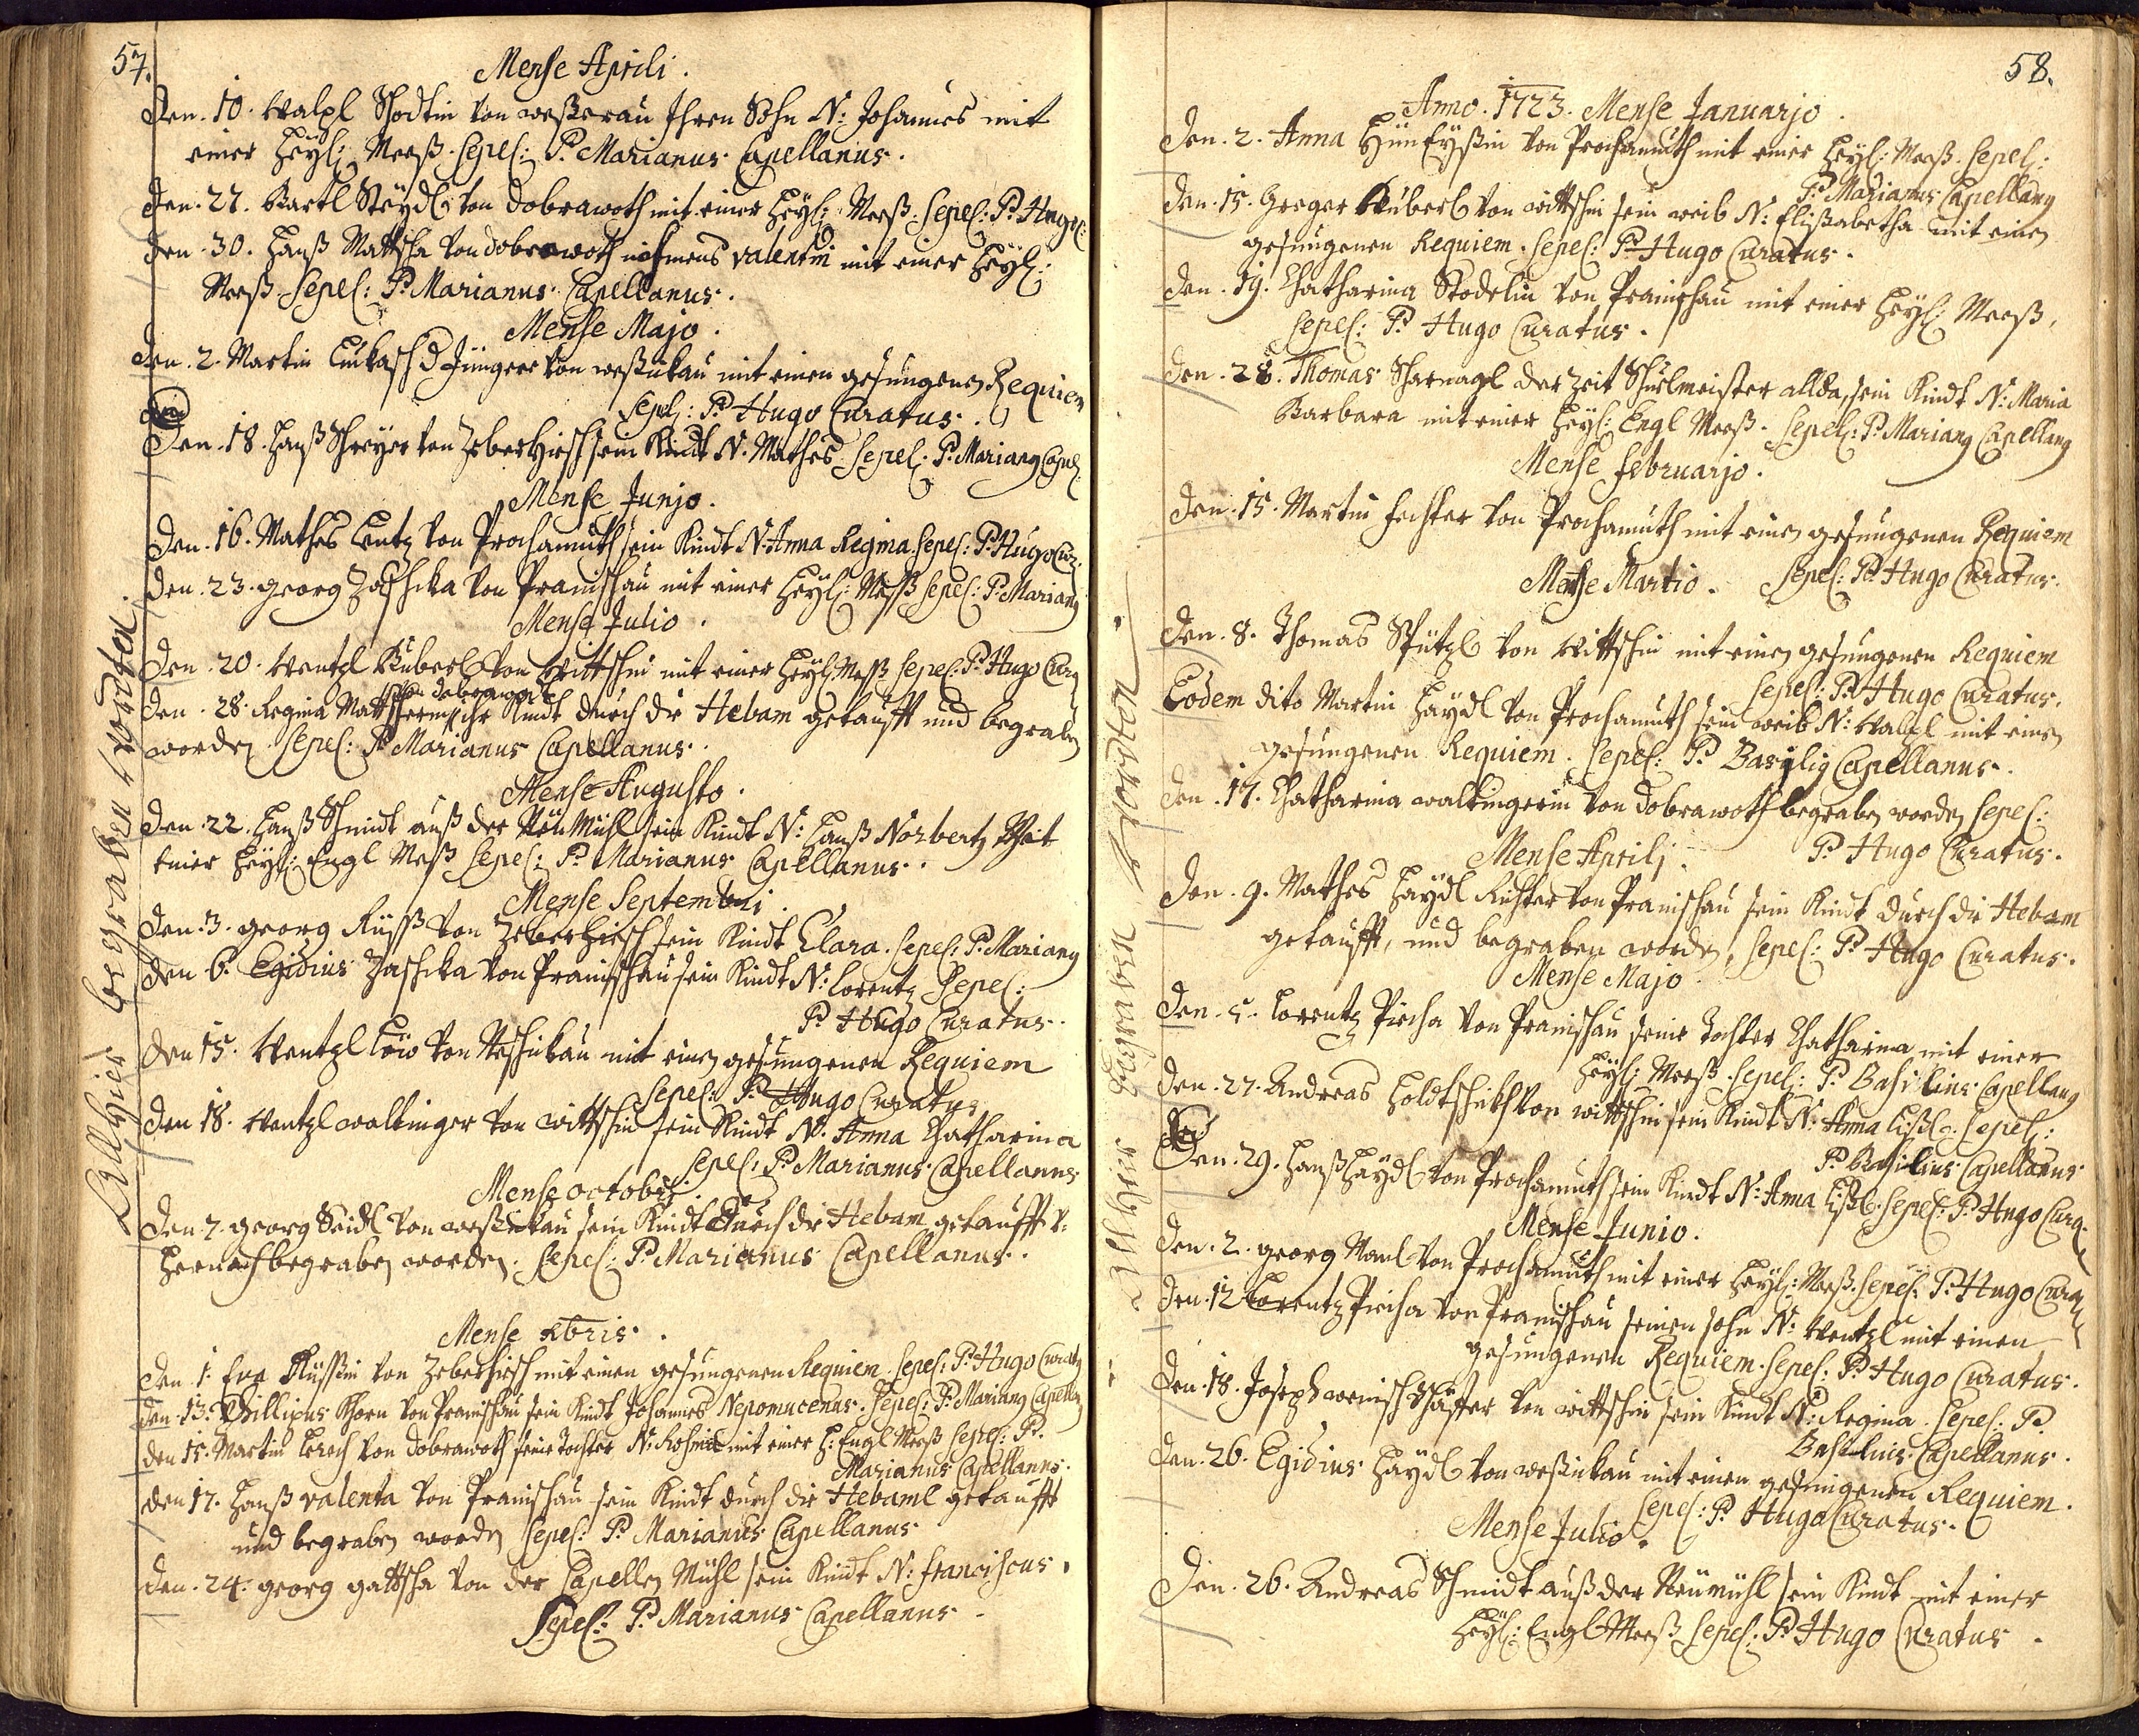 57.
Mense Aprili.
Den. 10. Walpl Schodtin von Weßerau Ihren Sohn N: Johannes mit
einer Heyl: Meeß. Sepel: P. Marianus Capellanus.
Den. 27. Bartl Steydl von Dobrawoth mit einer Heyl: Meeß. Sepel: P. Hugo
Den. 30. Hanß Mattscha von Dobrawoth nahmens Valentin mit einer Heyl:
Meeß. Sepel: P. Marianus Capellanus.
Mense Majo.
Den. 2. Martin Lukasch d Jüngere von Weßerkau mit einen gesungenen Requiem
Sepel: P. Hugo Curatus.
Den. 18. Hanß Schreyer von Zeberhiesch sein Kindt N. Mathes Sepel: P. Marian9 Capel:
Mense Junjo.
Den. 16. Mathes Lentz von Prochamuth sein Kindt N. Anna Regina. Sepel: P. Hugo Cur:
Den. 23. Georg Zaschka von Pranischau mit einer Heyl: Meß Sepel: P. Marian9
Mense Julio.
Den. 20. Wentzl Kuberl von Wittschin mit einer Heyl: Meß Sepel: P. Hugo Cur9
von dobrawoth
Den. 28. Regina Mattscherin ihr Kindt durch die Hebam getaufft und begraben
worden. Sepel: P. Marianus Capellanus.
Mense Augusto.
Den. 22. Hanß Schmidt auß der Neu Mühl sein Kindt N: Hanß Norbert9 Mit
einer Heyl: Engl Meß Sepel: P. Marianus Capellanus.
Mense Septembri.
Den. 3. Georg Rüß von Zeberhiesch sein Kindt Clara. Sepel: P. Marian9
Den 6. Egidius Zaschka von Pranischau sein Kindt N: Lorentz Sepel:
P. Hugo Curatus.
Den 15. Wentzl Löw von Neschikau mit einen gesungenen Requiem
Sepel: P. Hugo Curatus
Den 18. Wentzl Waltinger von Wittschin sein Kindt N. Anna Chatharina
Sepel: P. Marianus Capellanus
Mense octobris.
Den 7. Georg Seidl von Weßerkau sein Kindt Durch die Hebam getaufft v:
hernach begraben worden. Sepel: P. Marianus Capellanus.
Mense Xbris.
Den. 1. Eva Rüßin von Zeberhiesch mit einen gesungenen Requiem. Sepel: P. Hugo Curat9
Den 13. Phillipus Khorn von Pranischau sein Kindt Johannes Nepomucenus. Sepel: P. Marian9 Capellan9
Den 15. Martin Lerch von Dobrawoth seine Tochter N: Rosina mit einer H: Engl Meeß Sepel: P.
Marianus Capellanus.
Den 17. Hanß Valenta von Pranischau sein Kindt durch die Hebaml getaufft
und begraben worden Sepel: P. Marianus Capellanus
Den. 24. Georg Gattscha von der Capellen Mühl sein Kindt N: Franciscus.
Sepel: P. Marianus Capellanus.
Allhier begraben worden.
58.
Anno. 1723. Mense Januarjo.
Den. 2. Anna von Prochamuth mit einer Heyl: Meeß. Sepel:
P. Marianus Capellan9
Den. 15. Greger Kuberl von Wittschin sein weib N: Elißabetha mit einen
gesungenen Requiem. Sepel: P. Hugo Curatus.
Den. 19. Chatharina Stodelin von Pranischau mit einer Heyl: Meeß,
Sepel: P. Hugo Curatus.
Den. 28. Thomas Scharnagl der Zeit Schuelmeister allda, sein Kindt N: Maria
Barbara mit einer Heyl: Engl Meeß. Sepel: P. Marian9 Capellan9
Mense Februarjo.
Den. 15. Martin Fechter von Prochamuth mit einen gesungenen Requiem
Sepel: P. Hugo Curatus.
Mense Martio.
Den. 8. Thomas Spützl von Wittschin mit einen gesungenen Requiem
Sepel: P. Hugo Curatus.
Eodem dito Martin Haydl von Prochamuth sein weib N: Walpl mit einen
gesungenen Requiem. Sepel: P. Basylig Capellanus.
Den. 17. Chatharina Waltingerin von Dobrawoth begraben worden Sepel:
P. Hugo Curatus.
Mense Aprilj.
Den. 9. Mathes Haydl Richter von Pranischau sein Kindt durch die Hebam
getaufft, und begraben worden, Sepel: P. Hugo Curatus.
Mense Majo
Den. 5. Lorentz Pircha von Pranischau seine Tochter Chatharina mit einer
Heyl: Meeß. Sepel: P. Basilius Capellan9
Den. 27. Andreas Holdtschikh von Wittschin sein Kindt N: Anna Lißl. Sepel:
P. Basilius Capellanus
Den. 29. Hanß Haydl von Prochamuth sein Kindt N: Anna Lißl. Sepel: P. Hugo Cura
Mense Junio.
Den. 2. Georg Manl von Prochamuth mit einer Heyl: Meeß. Sepel: P. Hugo Cura
Den. 12 Lorentz Pircha von Pranischau seinen Sohn N: Wentzl mit einen
gesungenen Requiem. Sepel: P. Hugo Curatus.
Den. 18. Joseph Wenisch Schäffer von Wittschin sein Kindt N: Regina. Sepel: P.
Basilius Capellanus.
Den. 26. Egidius Haydl von Weßerkau mit einen gesungenen Requiem.
Sepel: P. Hugo Curatus.
Mense Julio.
Den. 26. Andreas Schmidt auß der Neumühl sein Kindt mit einer
Heyl: Engl Meeß Sepel: P. Hugo Curatus.
Allhier begraben worden.